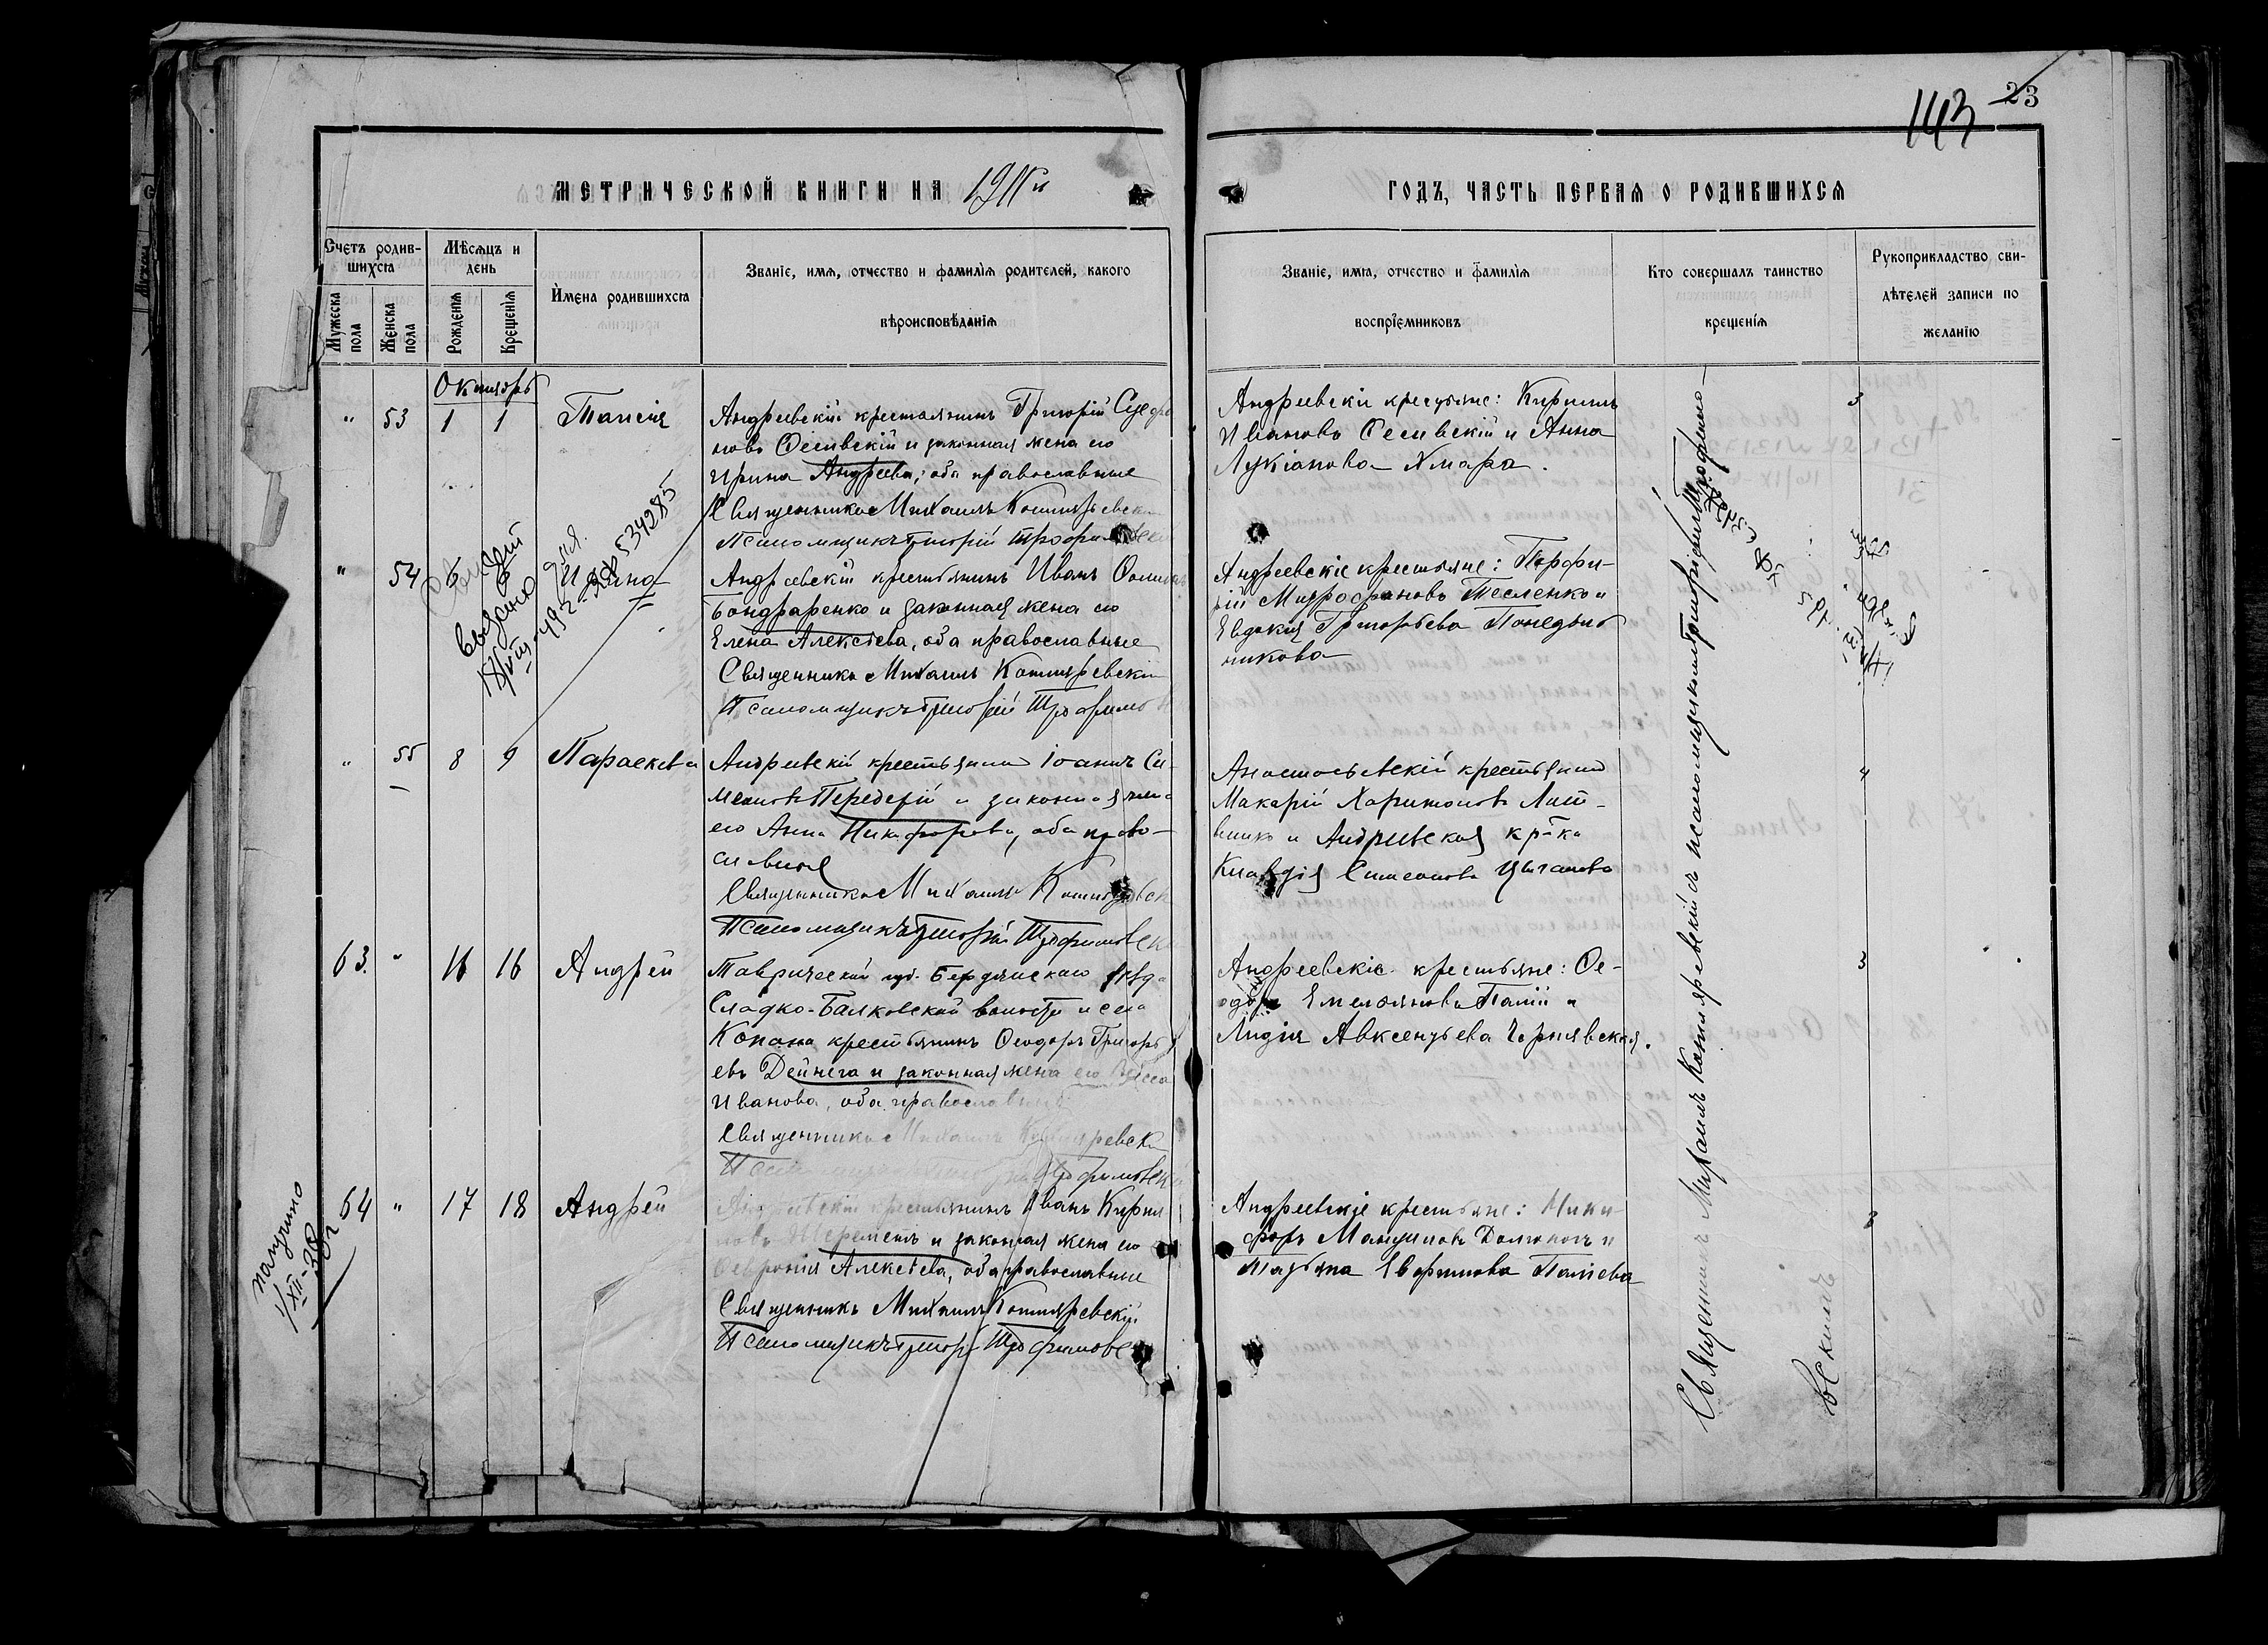 143 23
МЕТРИЧЕСКОЙ КНИГИ НА 1911й
ГОДЪ, ЧАСТЬ ПЕРВАЯ О РОДИВШИХСЯ
Счетъ родив-
шихся
Мужеска пола
Женска пола
Мѣсяцъ и
день
Рожденія
Крещенія
Имена родившихся
Званіе, имя, отчество и фамилія родителей, какого
вѣроисповѣданія
Званіе, имя, отчество и фамилія
воспріемниковъ
Кто совершалъ таинство
крещенія
Рукоприкладство сви-
дѣтелей записи по
желанію
Октябрь
" 53 1 1 Таисія
Андреевскій крестьянинъ Григорій
новъ и законная жена его
Ирина Андреева; оба православные
Священникъ Михаилъ Котляревскій
Псаломщикъ Григорій
Андреевскіе крестьяне: Кириллъ
Ивановъ Сесивскій и Анна
Лукіанова Хмара.
" 54 6 6 Ирина
Андреевскій крестьянинъ Иванъ
Бондаренко и законная жена его
Елена Алексѣева, оба православные
Священникъ Михаилъ Котляревскій
Псаломщикъ Григорій
Андреевскіе крестьяне: Порфи-
рій Митрофановъ Тесленко и
Евдокія Григорьева Понедѣль
никова
выдано
534285
" 55 8 9 Параскева
Андреевскій крестьянинъ Іоаннъ Си-
меоновъ Передерій и законная жена
его Анна Никифорова, оба право-
славные
Священникъ Михаилъ
Псаломщикъ Григорій Трофимовск
крестьянинъ
Макарій Харитоновъ Лит-
винъ и Андреевская кр-ка
Клавдія Симеонова Цыганова
4
63. " 16 16 Андрей
Таврической губ. Бердянскаго уѣзда
Сладко-Балковской волости и села
Копана крестьянинъ Ѳеодоръ Григорь
евъ Дейнега и законная жена его
Иванова, оба православные
Священникъ Михаилъ Котляревскій
Псаломщикъ
Андреевскіе крестьяне: Ѳе-
одоръ Емельяновъ Палій и
Лидія Авксентьева Чернявская.
3
64 " 17 18 Андрей
Андреевскій крестьянинъ Иванъ Кирил
ловъ Шереметъ и законная жена его
Ѳевронія Алексѣева, оба православные
Священникъ Михаилъ Котляревскій
Псаломщикъ Григорій Трофимовск
Андреевскіе крестьяне: Ники-
форъ и
Татьяна Евфимова Паліева
получено
1/XII-38г
Священникъ Михаилъ Котляревскій съ псаломщикомъ Григоріемъ Трофимо-
вскимъ